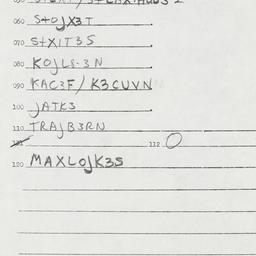 060 S+OJX3T
070 S+X1T3S
080 KOJLS-3N
090 KAC3F/K3CUVN
100 JATK3
110 TRAJB3RN
112 O
120 MAXLOJK3S